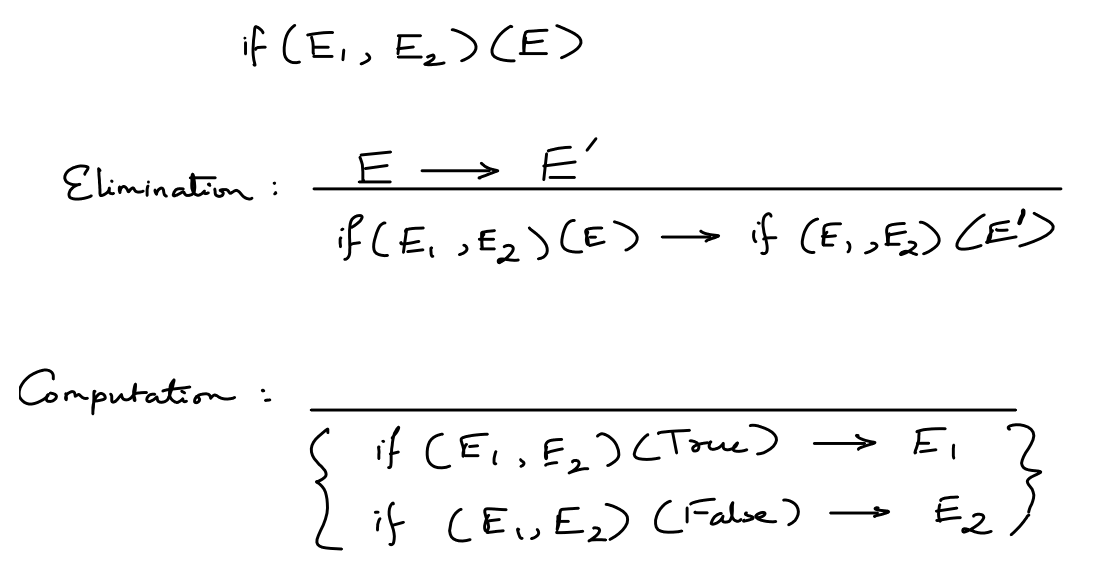 if (E₁, E₂)(E)
Elimination : E ⟶ E′
if (E₁, E₂)(E) ⟶ if (E₁, E₂)(E′)
Computation :
{ if (E₁, E₂)(True) ⟶ E₁
if (E₁, E₂) (False) ⟶ E₂ }